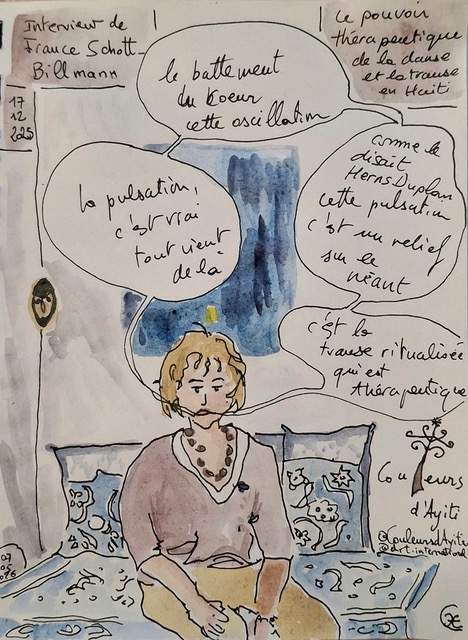 Interview de
France Schott-
Billmann
Le pouvoir
thérapeutique
de la danse
et la transe
en Haïti
17
12
2025
le battement
du Koeur
cette oscillation
la pulsation,
c'est vrai
tout vient
de là
comme le
disait
Herns Duplan
cette pulsation
c'est un relief
sur le
néant
c'est la
transe ritualisée
qui est
thérapeutique
Couleurs
d'Ayiti
@CouleursdAyiti
@d.r.t.international
07